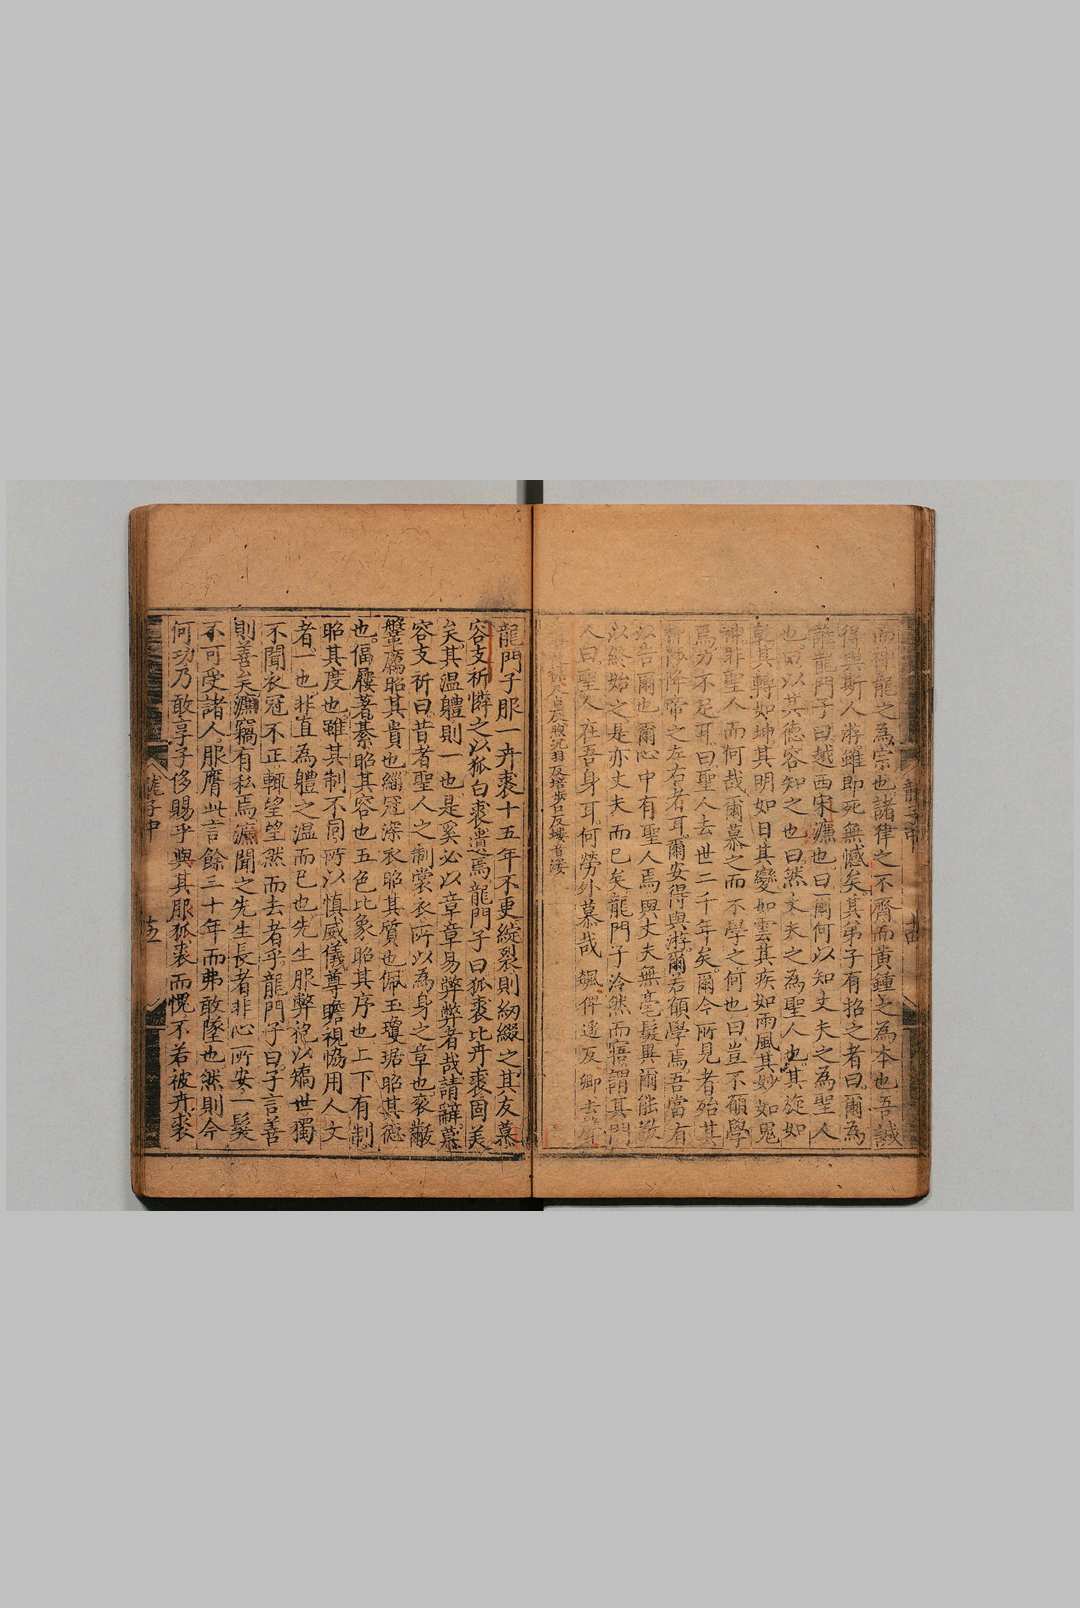 而稗龍之為宗也諸律之不齊而黃鍾之為本也吾誠
得與斯人游雖即死無憾矣其弟子有招之者曰爾為
誰龍門子曰越西宋濂也曰爾何以知丈夫之為聖人
也曰以其德容知之也曰然丈夫之為聖人也其旋如
乾其轉如坤其明如日其變如雲其疾如雨風其妙如鬼
神非聖人而何哉爾慕之而不學之何也曰豈不願學
焉劣不足耳曰聖人去世二千年矣爾今所見者殆其
陟降帝之左右者耳爾安得與游爾若願學焉吾當有
以告爾也爾心中有聖人焉與丈夫無毫髮異爾能敬
以終始之是亦丈夫而已矣龍門子泠然而寤謂其門
人曰聖人在吾身耳何勞外慕哉
龍門子服一卉裘十五年不更綻裂則紉綴之其友慕
容支祈憐之以狐白裘遺焉龍門子曰狐裘比卉裘固美
矣其溫體則一也是奚必以章章易弊弊者哉請辭慕
容支祈曰昔者聖人之制裳衣所以為身之章也袞黻
鞶厲昭其貴也緇冠深衣昭其質也佩玉瓊琚昭其德
也偪屨著綦昭其容也五色比象昭其序也上下有制
昭其度也雖其制不同所以慎威儀尊瞻視恊用人文
者一也非直為體之溫而已也先生服弊袍以矯世獨
不聞衣冠不正輒望望然而去者乎龍門子曰子言善
則善矣濂竊有私焉濂聞之先生長者非心所安一髮
不可受諸人服膺此言餘三十年而弗敢墜也然則今
何功乃敢享子侈賜乎與其服狐裘而愧不若被卉裘